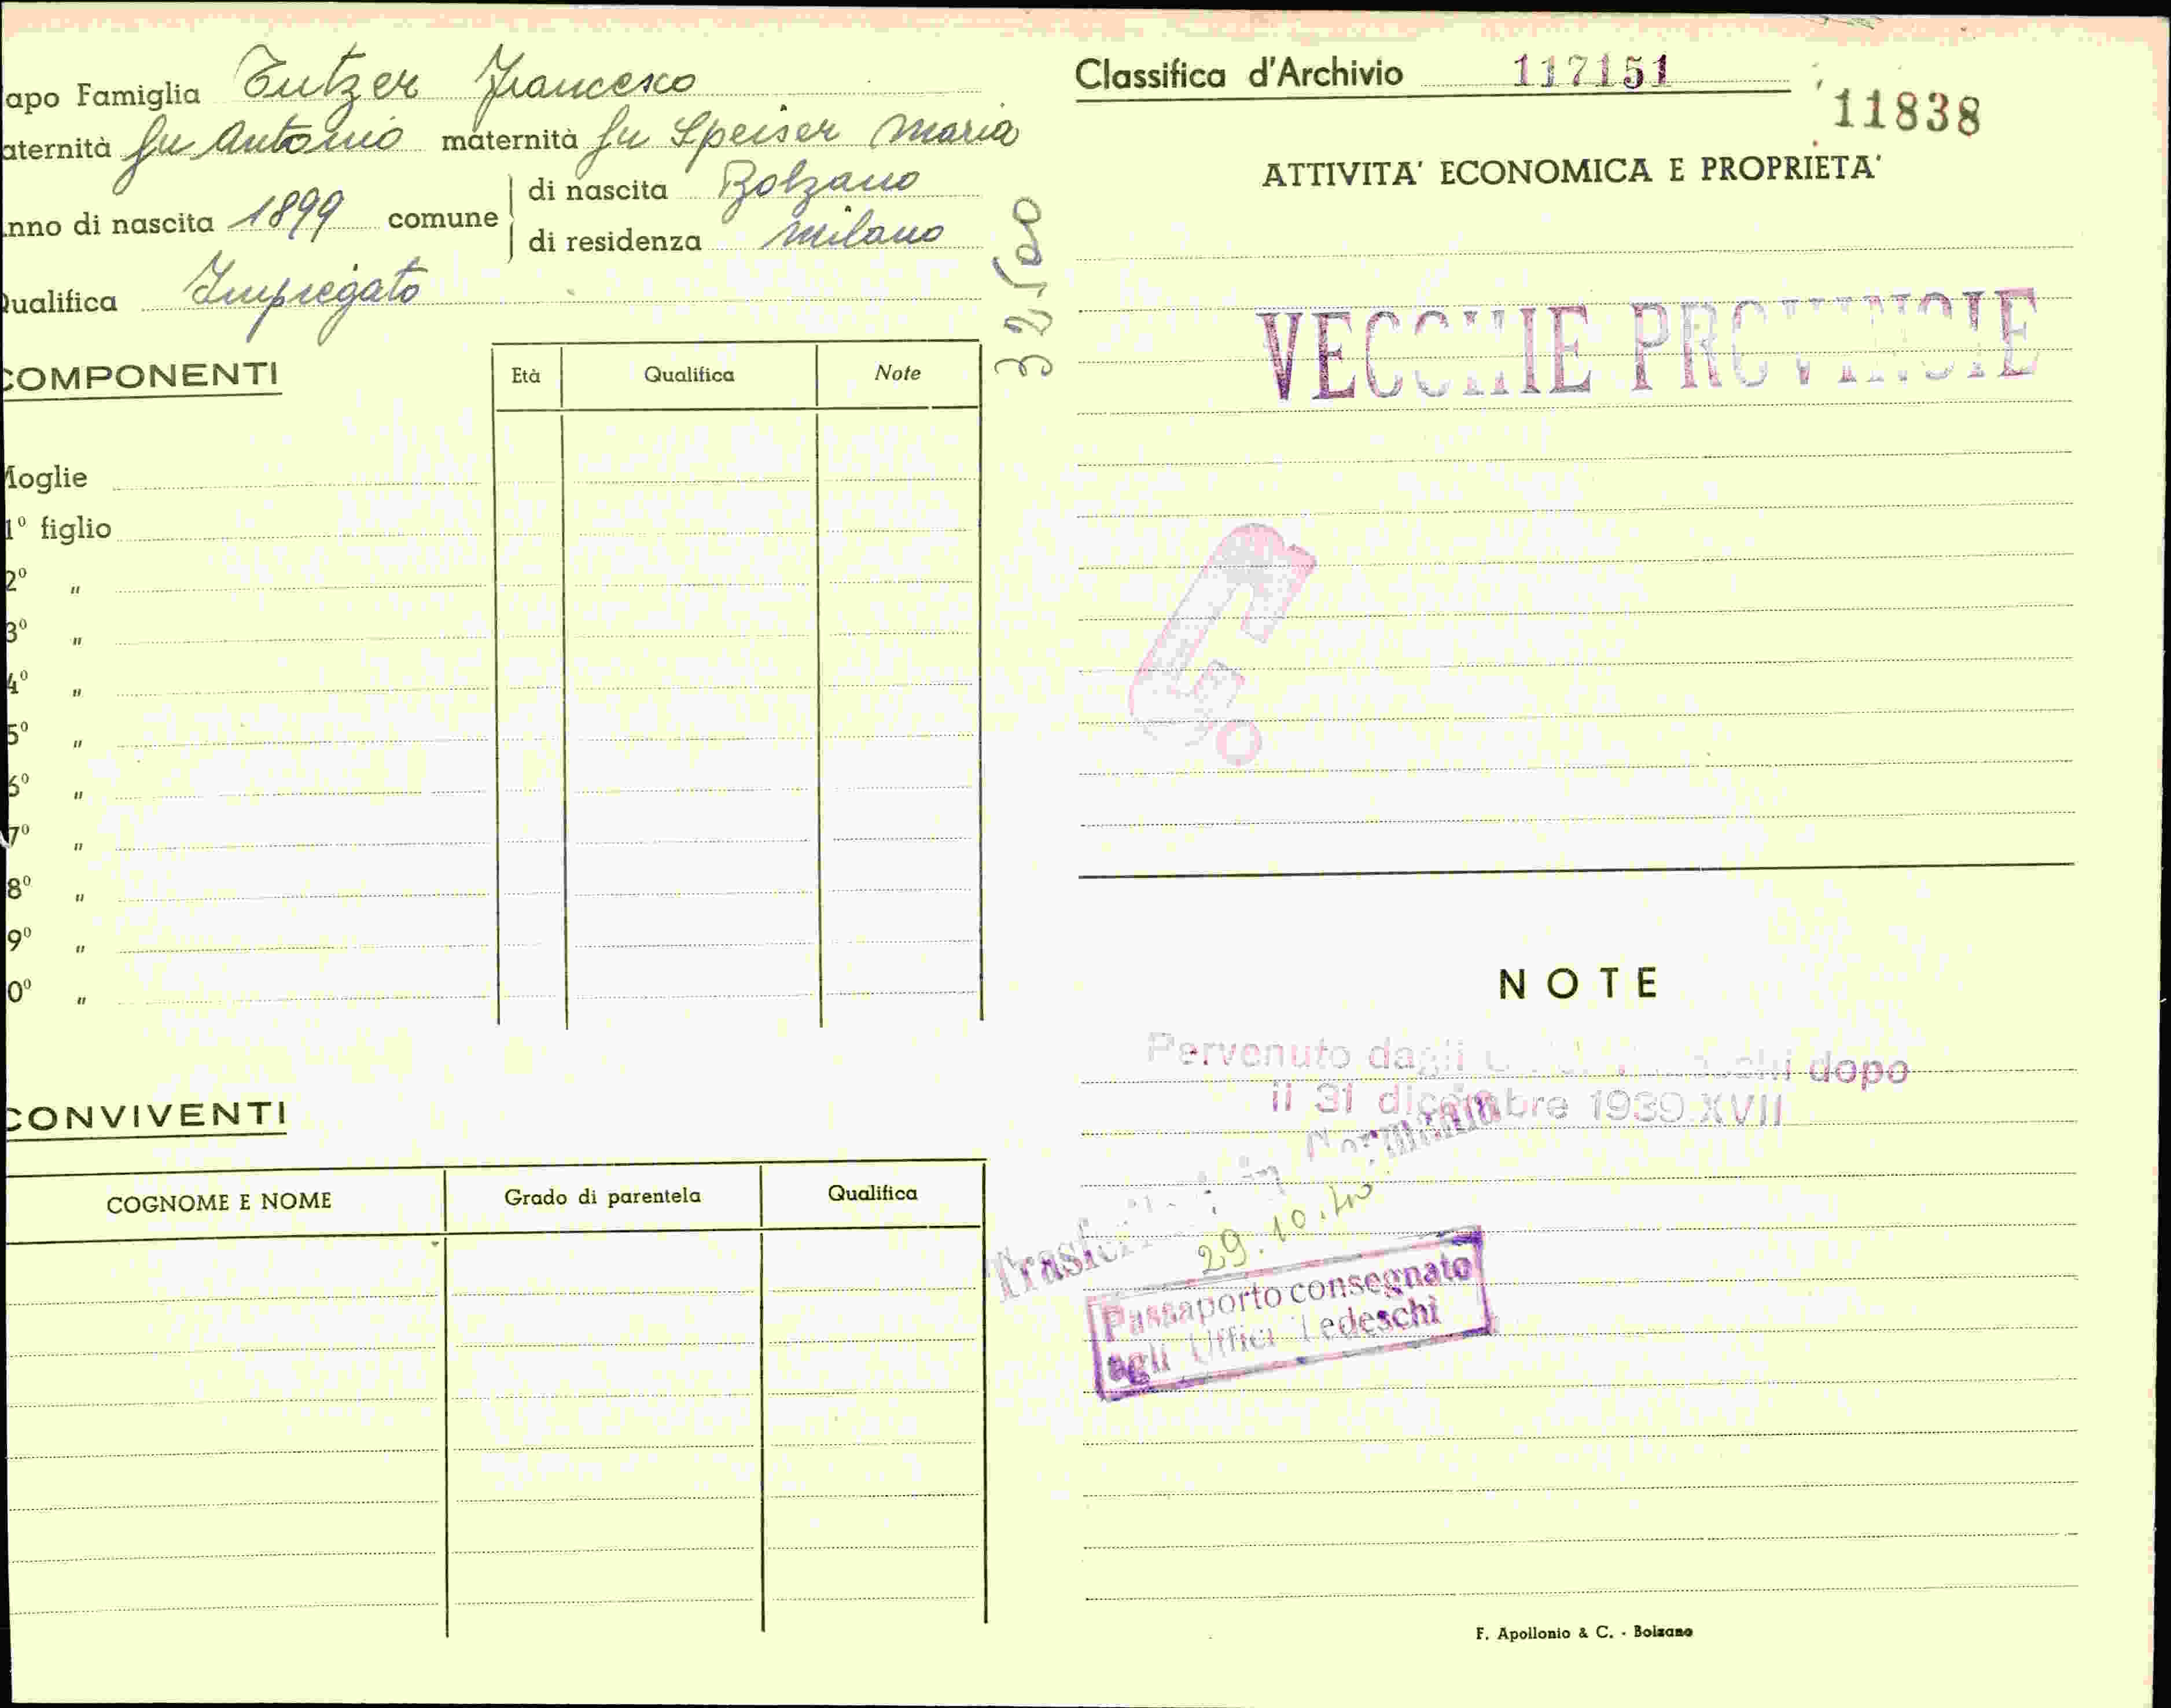 apo Famiglia Tutzer Francesco
aternità fu Antonio maternità fu Speiser Maria
nno di nascita 1899 comune di nascita Bolzano
di residenza Milano
ualifica Impiegato
COMPONENTI
Età Qualifica Note
Moglie
1º figlio
2º "
3º "
4º "
5º "
6º "
7º "
8º "
9º "
0º "
CONVIVENTI
COGNOME E NOME Grado di parentela Qualifica
Classifica d'Archivio 117151
11838
ATTIVITA' ECONOMICA E PROPRIETA'
VECCHIE PROVINCIE
NOTE
Pervenuto dagli dopo
il 31 dicembre 1939 XVII
Trasferito in Germania
29.10.40
Passaporto consegnato
agli Uffici Tedeschi
F. Apollonio & C. - Bolzano